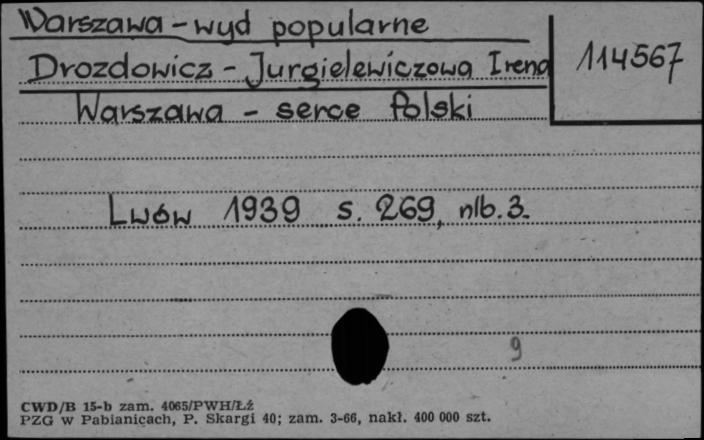 Warszawa - wyd popularne
114567
Drozdowicz - Jurgielewiczowa Irena
Warszawa - serce Polski
Lwów 1939 s. 269, nlb. 3.
9
CWD/B 15-b zam. 4065/PWH/Łź
PZG w Pabianicach, P. Skargi 40; zam. 3-66, nakł. 400 000 szt.